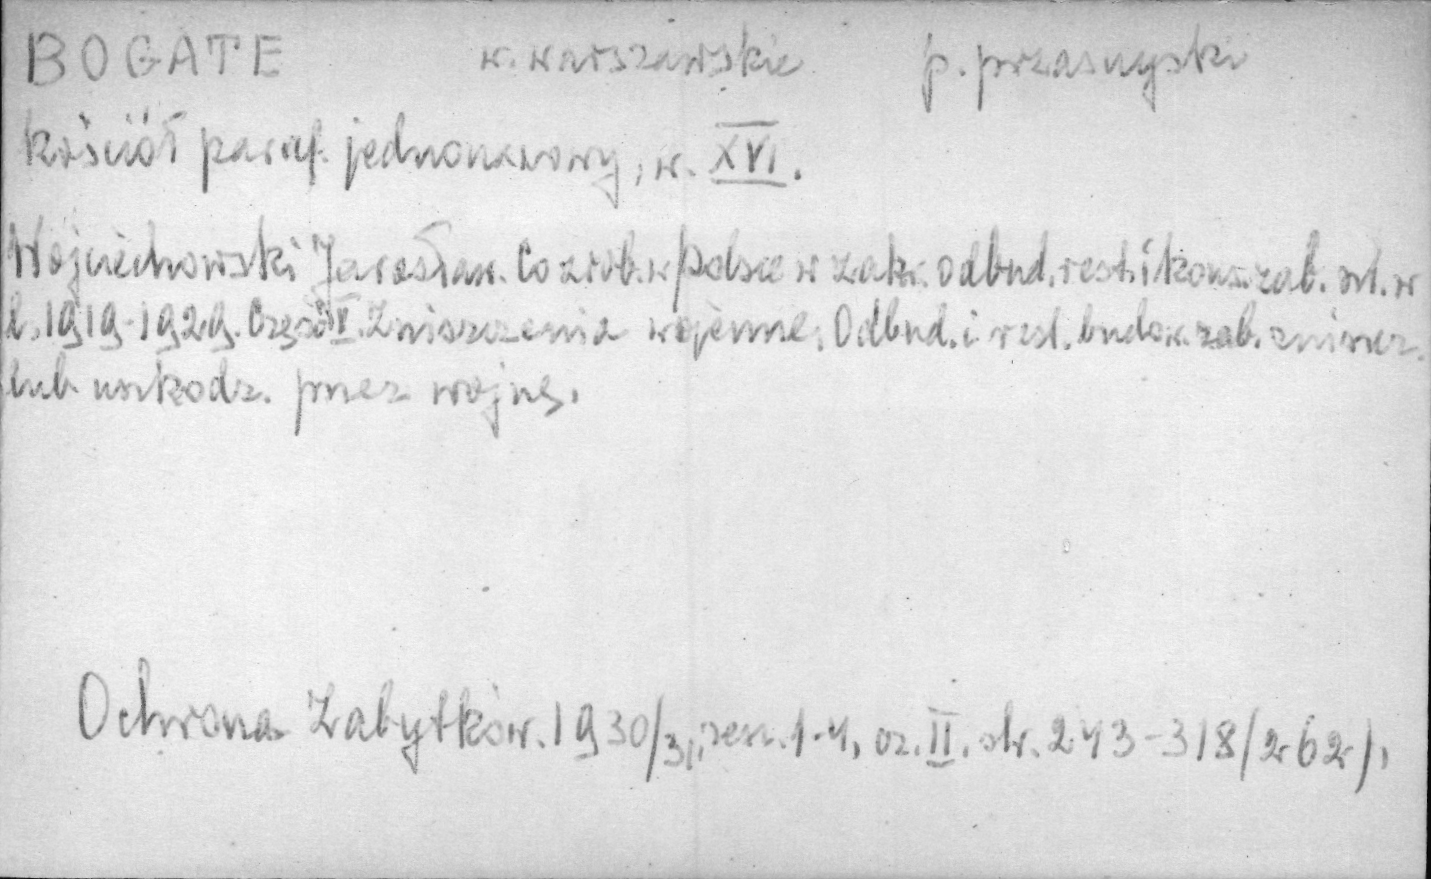 BOGATE w. warszawskie p. przasnyski
Kościół paraf. jednonawowy, w. XVI.
Wojciechowski Jarosław. Co zrob. w Polsce w zakr. odbud. rest. i kons. zab. szt. w
l. 1919-1929. Część II. Zniszczenia wojenne. Odbud. i rest. budow. zab. zniszcz.
lub uszkodz. przez wojnę.
Ochrona Zabytków. 1930/31, zesz. 1-4, cz. II. str. 243-318/262/.